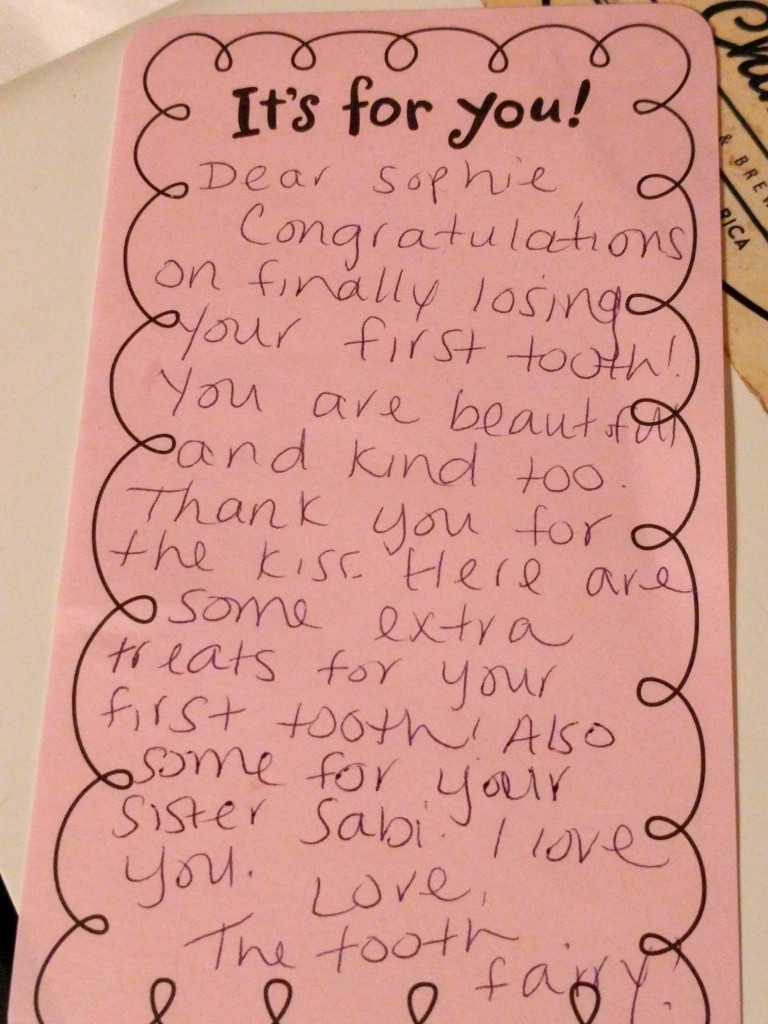 It's for you!
Dear Sophie,
Congratulations
on finally losing
your first tooth!
You are beautiful
and kind too.
Thank you for
the kiss. Here are
some extra
treats for your
first tooth! Also
some for your
sister Sabi. I love
you. Love,
The tooth
fairy!
& BREW
RICA